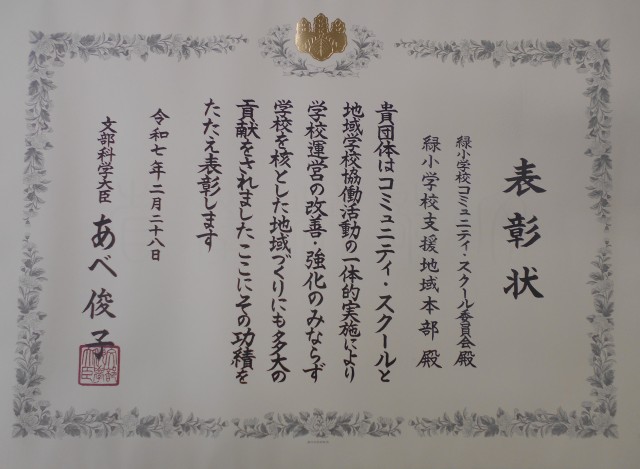 表彰状
緑小学校コミュニティ・スクール委員会殿
緑小学校支援地域本部 殿
貴団体はコミュニティ・スクールと
地域学校協働活動の一体的実施により
学校運営の改善・強化のみならず
学校を核とした地域づくりにも多大の
貢献をされました ここにその功績を
たたえ表彰します
令和七年二月二十八日
文部科学大臣 あべ俊子